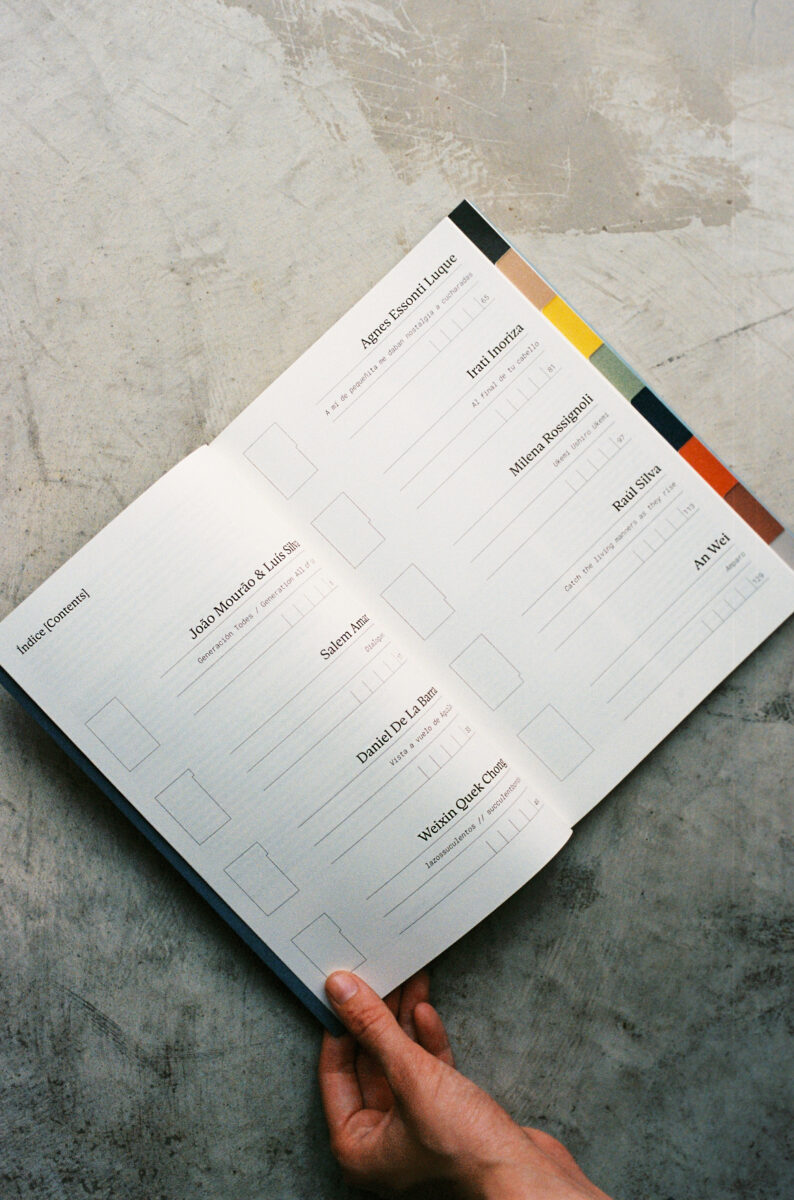 Índice [Contents]
João Mourão & Luís Silva
Generación Todes / Generation All
Salem Amar
Daniel De La Barra
Vista a vuelo de
Weixin Quek Chong
lazossuculentos // succulentbons
Agnes Essonti Luque
A mí de pequeñita me daban nostalgia a cucharadas
65
Irati Inoriza
Al final de tu cabello
81
Milena Rossignoli
Ukemi Ushiro Ukemi
97
Raúl Silva
Catch the living manners as they rise
113
An Wei
Amparo
129